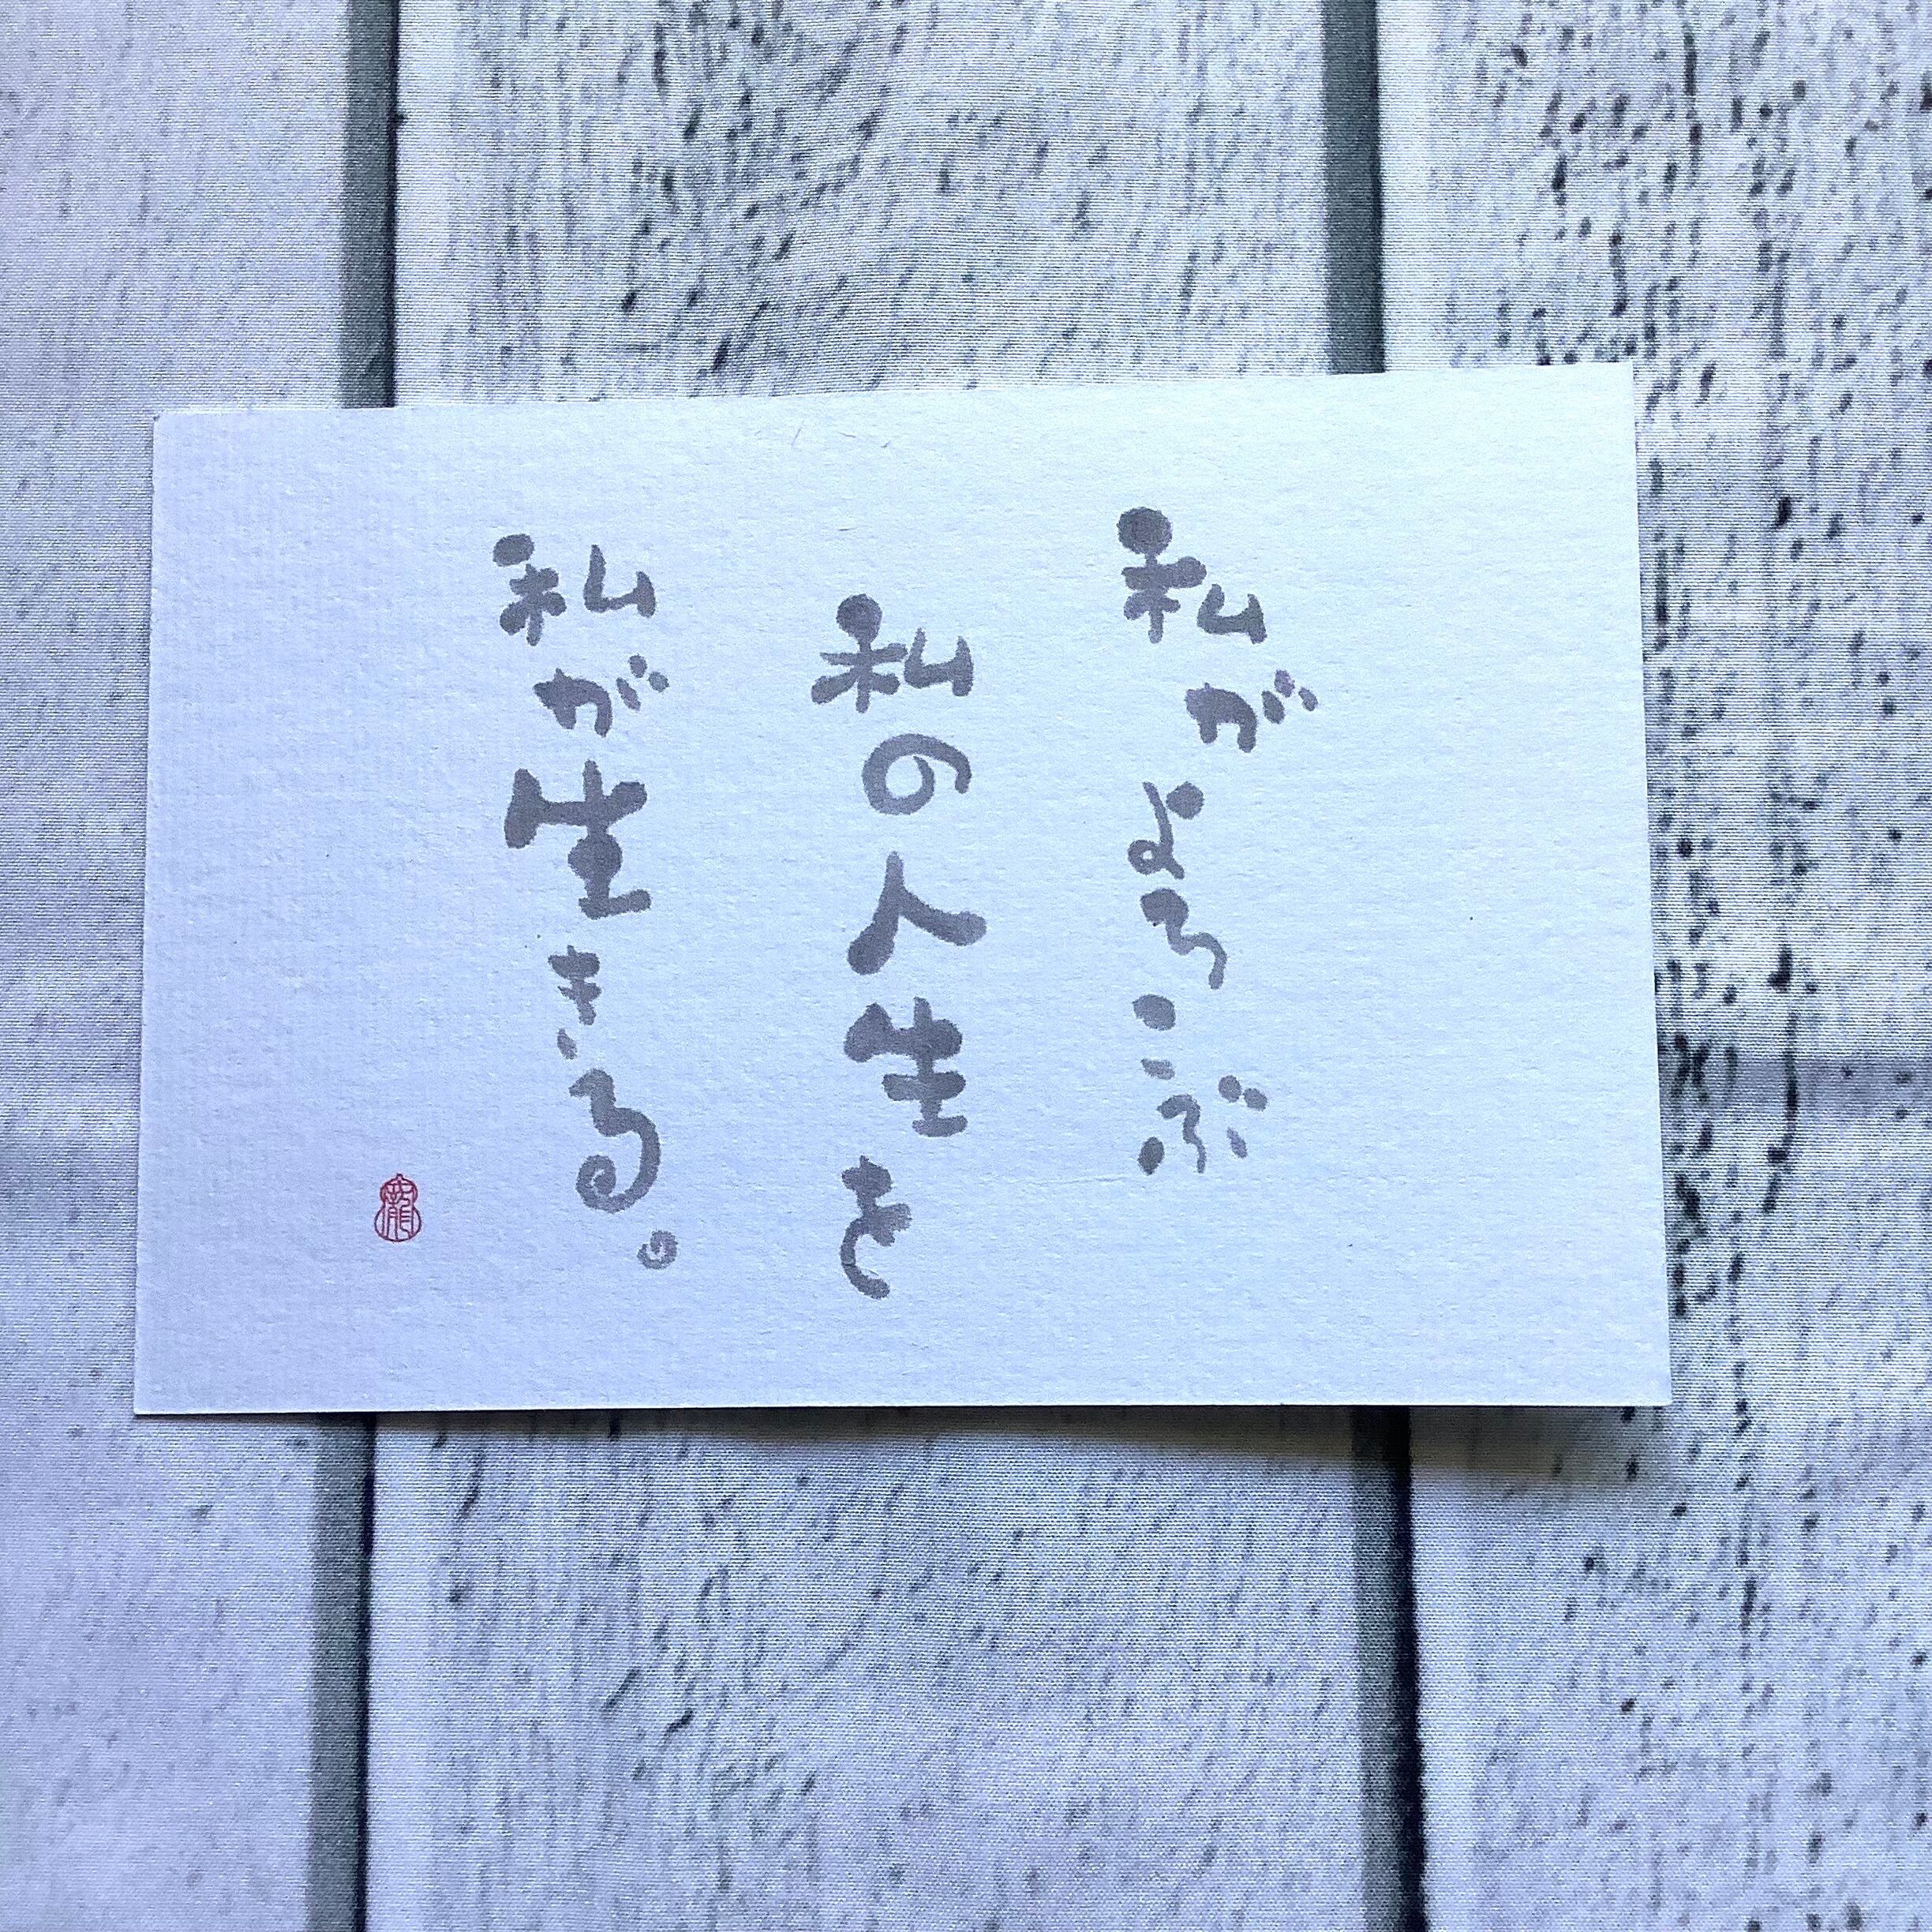 私がよろこぶ
私の人生を
私が生きる。
龍